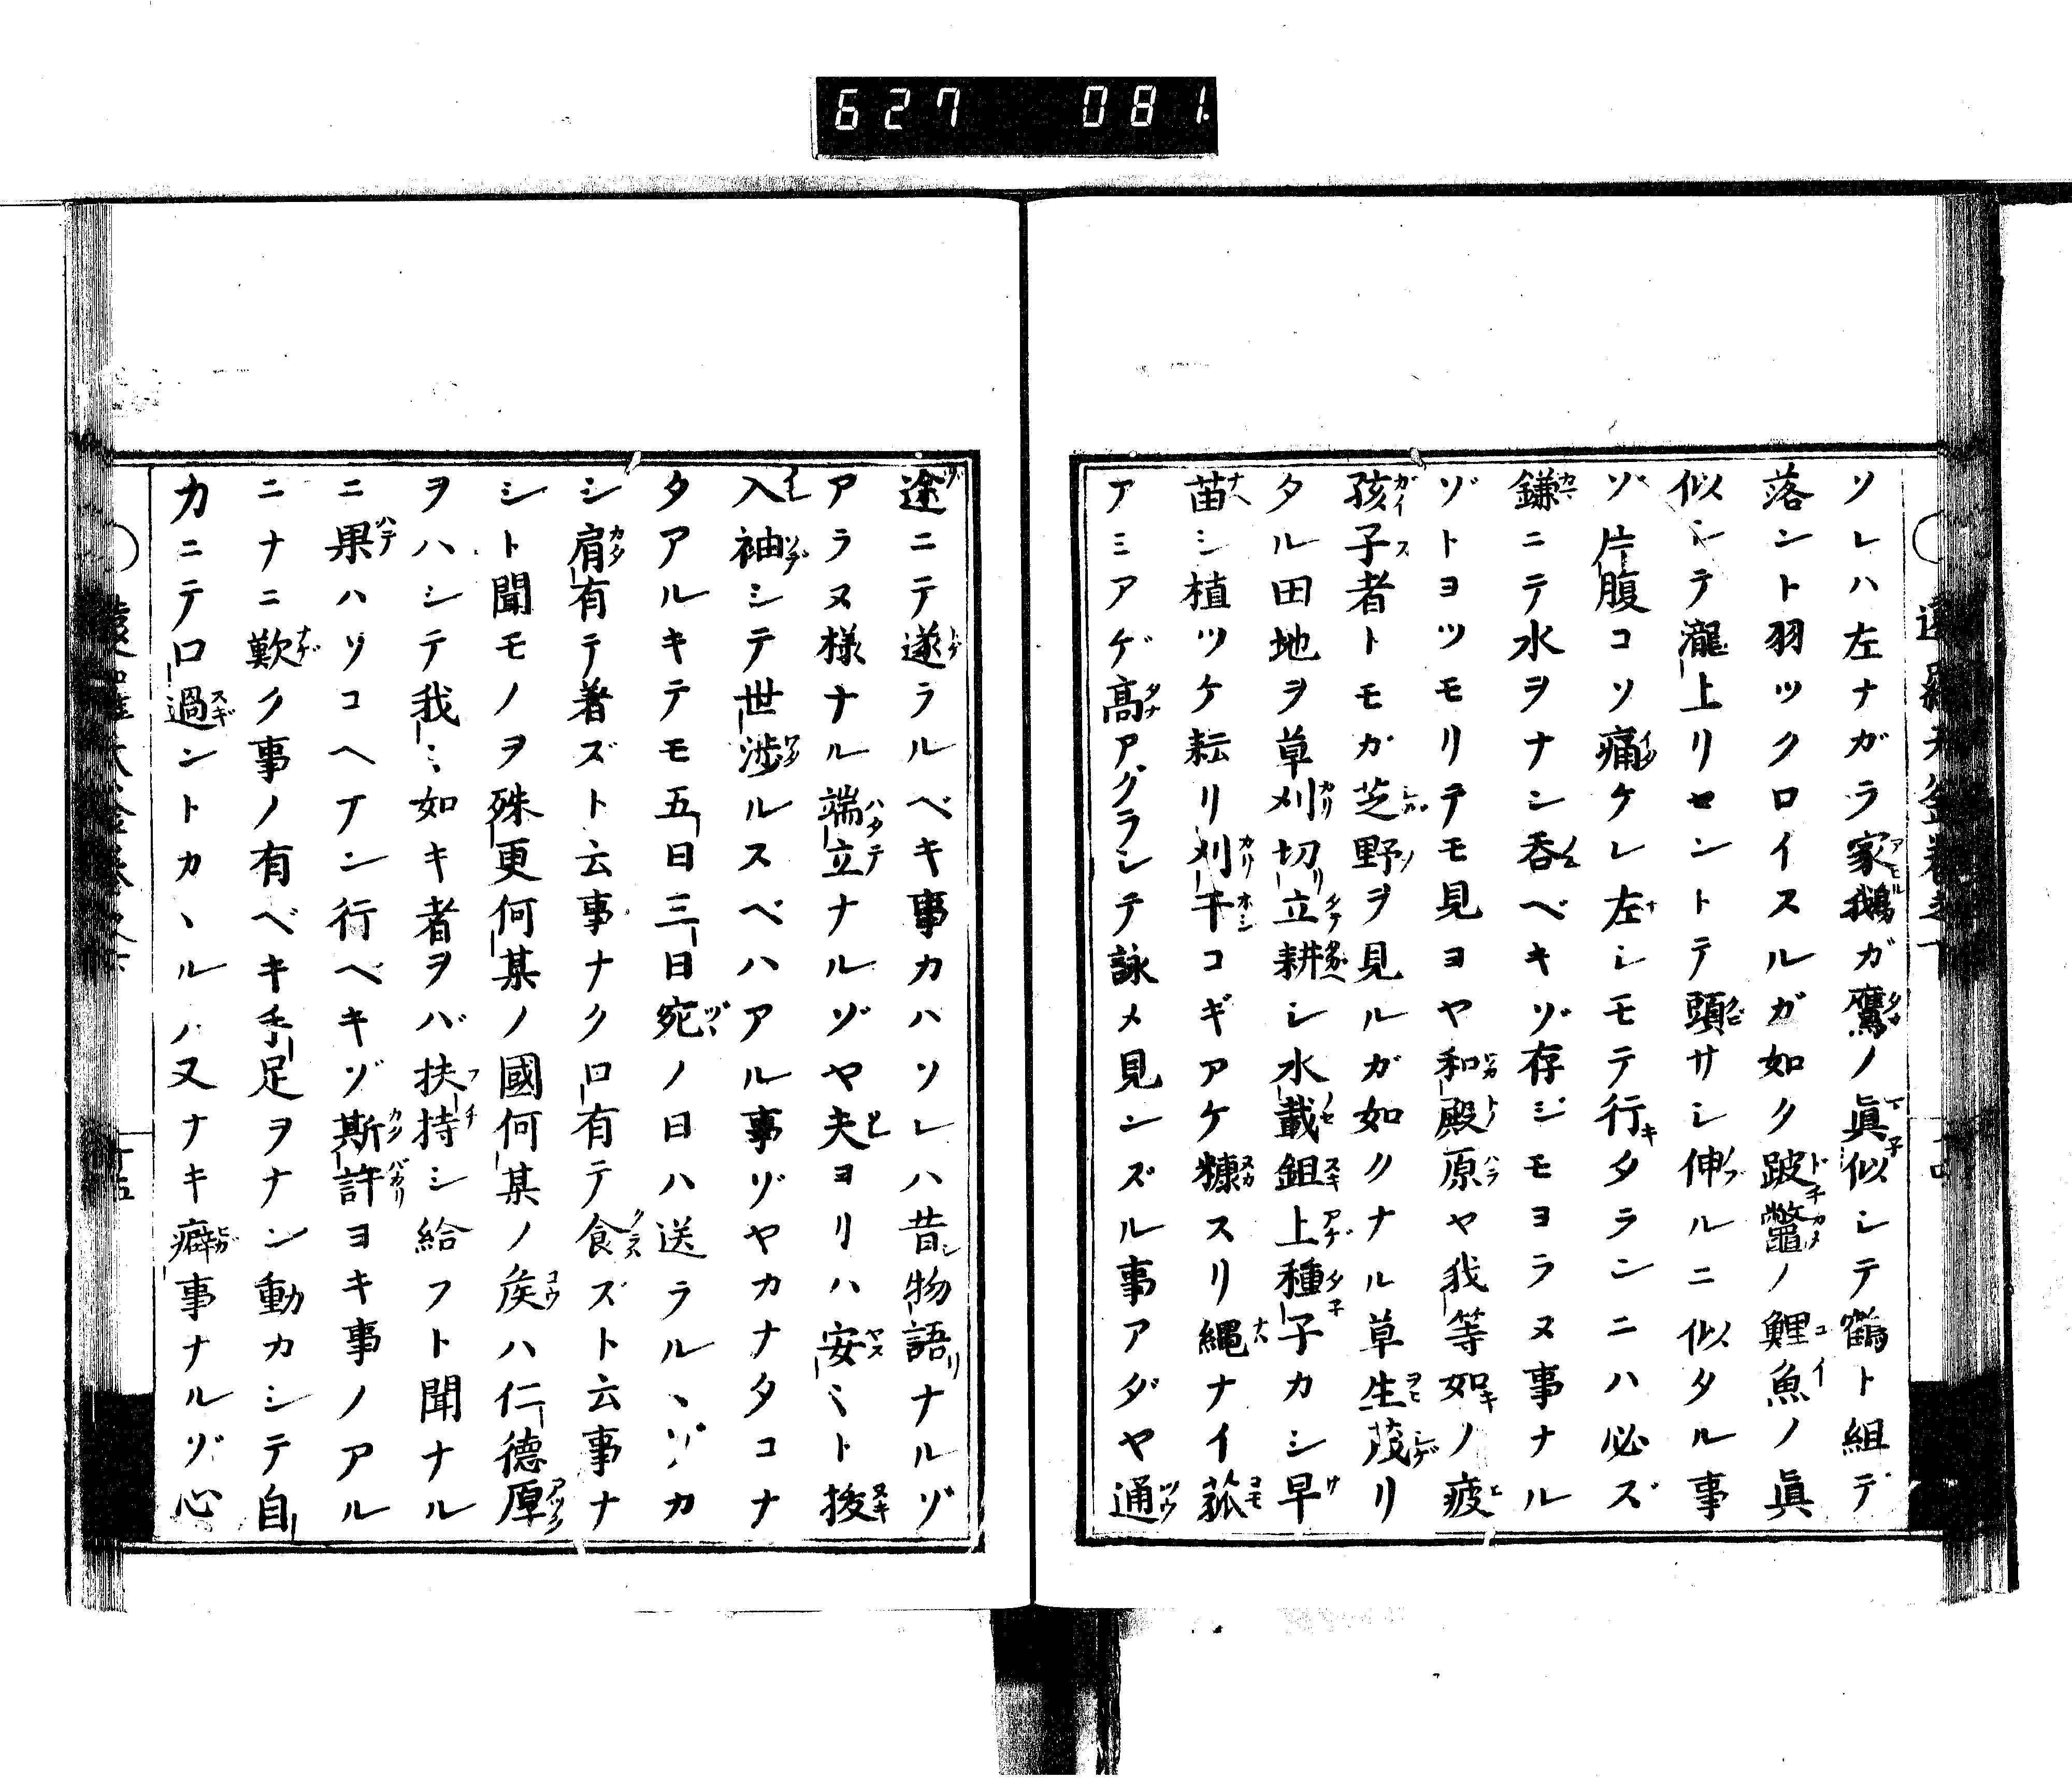 627 081.
ソレハ左ナガラ家鵝ガ鷹ノ眞似シテ鶴ト組デ
落ント羽ツクロイスルガ如ク跛鼈ノ鯉魚ノ眞
似シテ瀧上リセントテ頭サシ伸ルニ似タル事
ゾ片腹コソ痛ケレ左シモテ行タランニハ必ズ
鎌ニテ水ヲナン呑ベキゾ存ジモヨラヌ事ナル
ゾトヨツモリテモ見ヨヤ和殿原ヤ我等如ノ疲
孩子者トモガ芝野ヲ見ルガ如クナル草生茂リ
タル田地ヲ草刈切立耕シ水載鉏上種子カシ早
苗シ植ツケ耘リ刈干コギアケ糠スリ縄ナイ菰
アミアゲ高アグラシテ詠メ見ンズル事アダヤ通
途ニテ遂ラルベキ事カハソレハ昔物語ナルゾ
アラヌ様ナル端立ナルゾヤ夫ヨリハ安ミト拔
入袖シテ世渉ルスベハアル事ゾヤカナタコナ
タアルキテモ五日三日宛ノ日ハ送ラルヽゾカ
シ肩有テ著ズト云事ナク口有テ食ズト云事ナ
シト聞モノヲ殊更何某ノ國何某ノ矦ハ仁德厚
ヲハシテ我ミ如キ者ヲバ扶持シ給フト聞ナル
ニ果ハソコヘアン行ベキゾ斯許ヨキ事ノアル
ニナニ歎ク事ノ有ベキ手足ヲナン動カシテ自
カニテ口過ントカヽルハ又ナキ癖事ナルゾ心